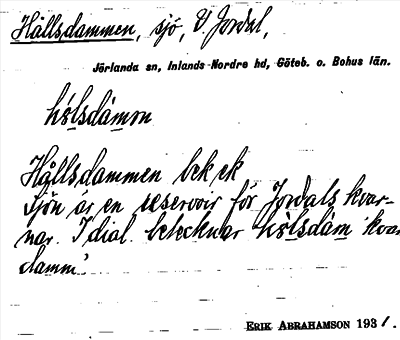 Hållsdammen, sjö, V. Jordal,
Jörlanda sn, Inlands Nordre hd, Göteb. o. Bohus län.
hòlsdámən
Hållsdammen bek ek
Sjön är en reservoir för Jordals kvar-
nar. I dial. betecknar hòlsdám 'kvar
damm'.
ERIK ABRAHAMSON 1931.